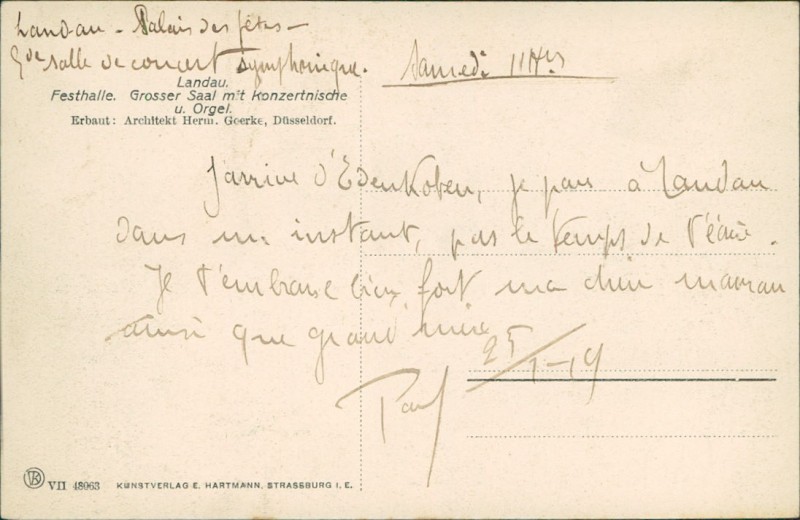 Landau - Palais des fêtes -
Gde salle de concert symphonique.
Samedi 11 Hrs
Landau.
Festhalle. Grosser Saal mit Konzertnische
u. Orgel.
Erbaut: Architekt Herm. Goerke, Düsseldorf.
J'arrive d'Edenkoben, je pars à Landau
dans un instant, pas le temps de t'écrire.
Je t'embrasse bien fort ma chère maman
ainsi que grand'mère
25/1-19
Paul
VII 48963 KUNSTVERLAG E. HARTMANN, STRASSBURG I. E.